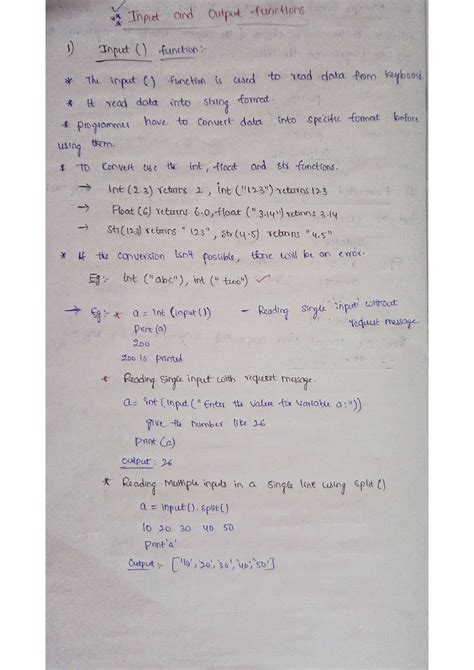 Input and Output functions
1) Input () function:-
* The input () function is used to read data from keyboard
* It read data into string format.
* programmer have to convert data into specific format before
using them.
* TO Convert use the int, float and str functions.
→ Int (2.3) returns 2, int ("123") returns 123
→ Float (6) returns 6.0, float ("3.14") returns 3.14
→ Str(123) returns "123", str(4.5) returns "4.5"
* If the conversion isn't possible, there will be an error.
Eg:- Int ("abc"), int ("two") ✓
→ Eg:- * a = Int (input()) - Reading single input without
request message.
Print (a)
200
200 is printed
* Reading single input with request message.
a= int (input ("Enter the value for variable a:"))
give the number like 26
Print (a)
Output: 26
* Reading multiple inputs in a single line using split ()
a = input().split()
10 20 30 40 50
Print 'a'
Output:- ['10', '20', '30', '40', '50']